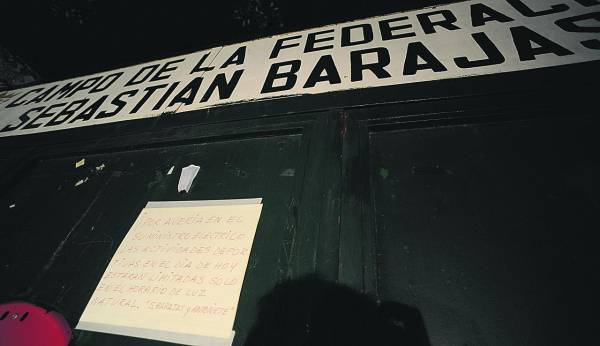 CAMPO DE LA FEDERACI
SEBASTIAN BARAJAS
POR AVERIA EN EL
SUMINISTRO ELECTRICO
LAS ACTIVIDADES DEPOR
TIVAS EN EL DIA DE HOY
ESTERAN LIMITADAS SOLO
EN EL HORARIO DE LUZ
NATURAL.